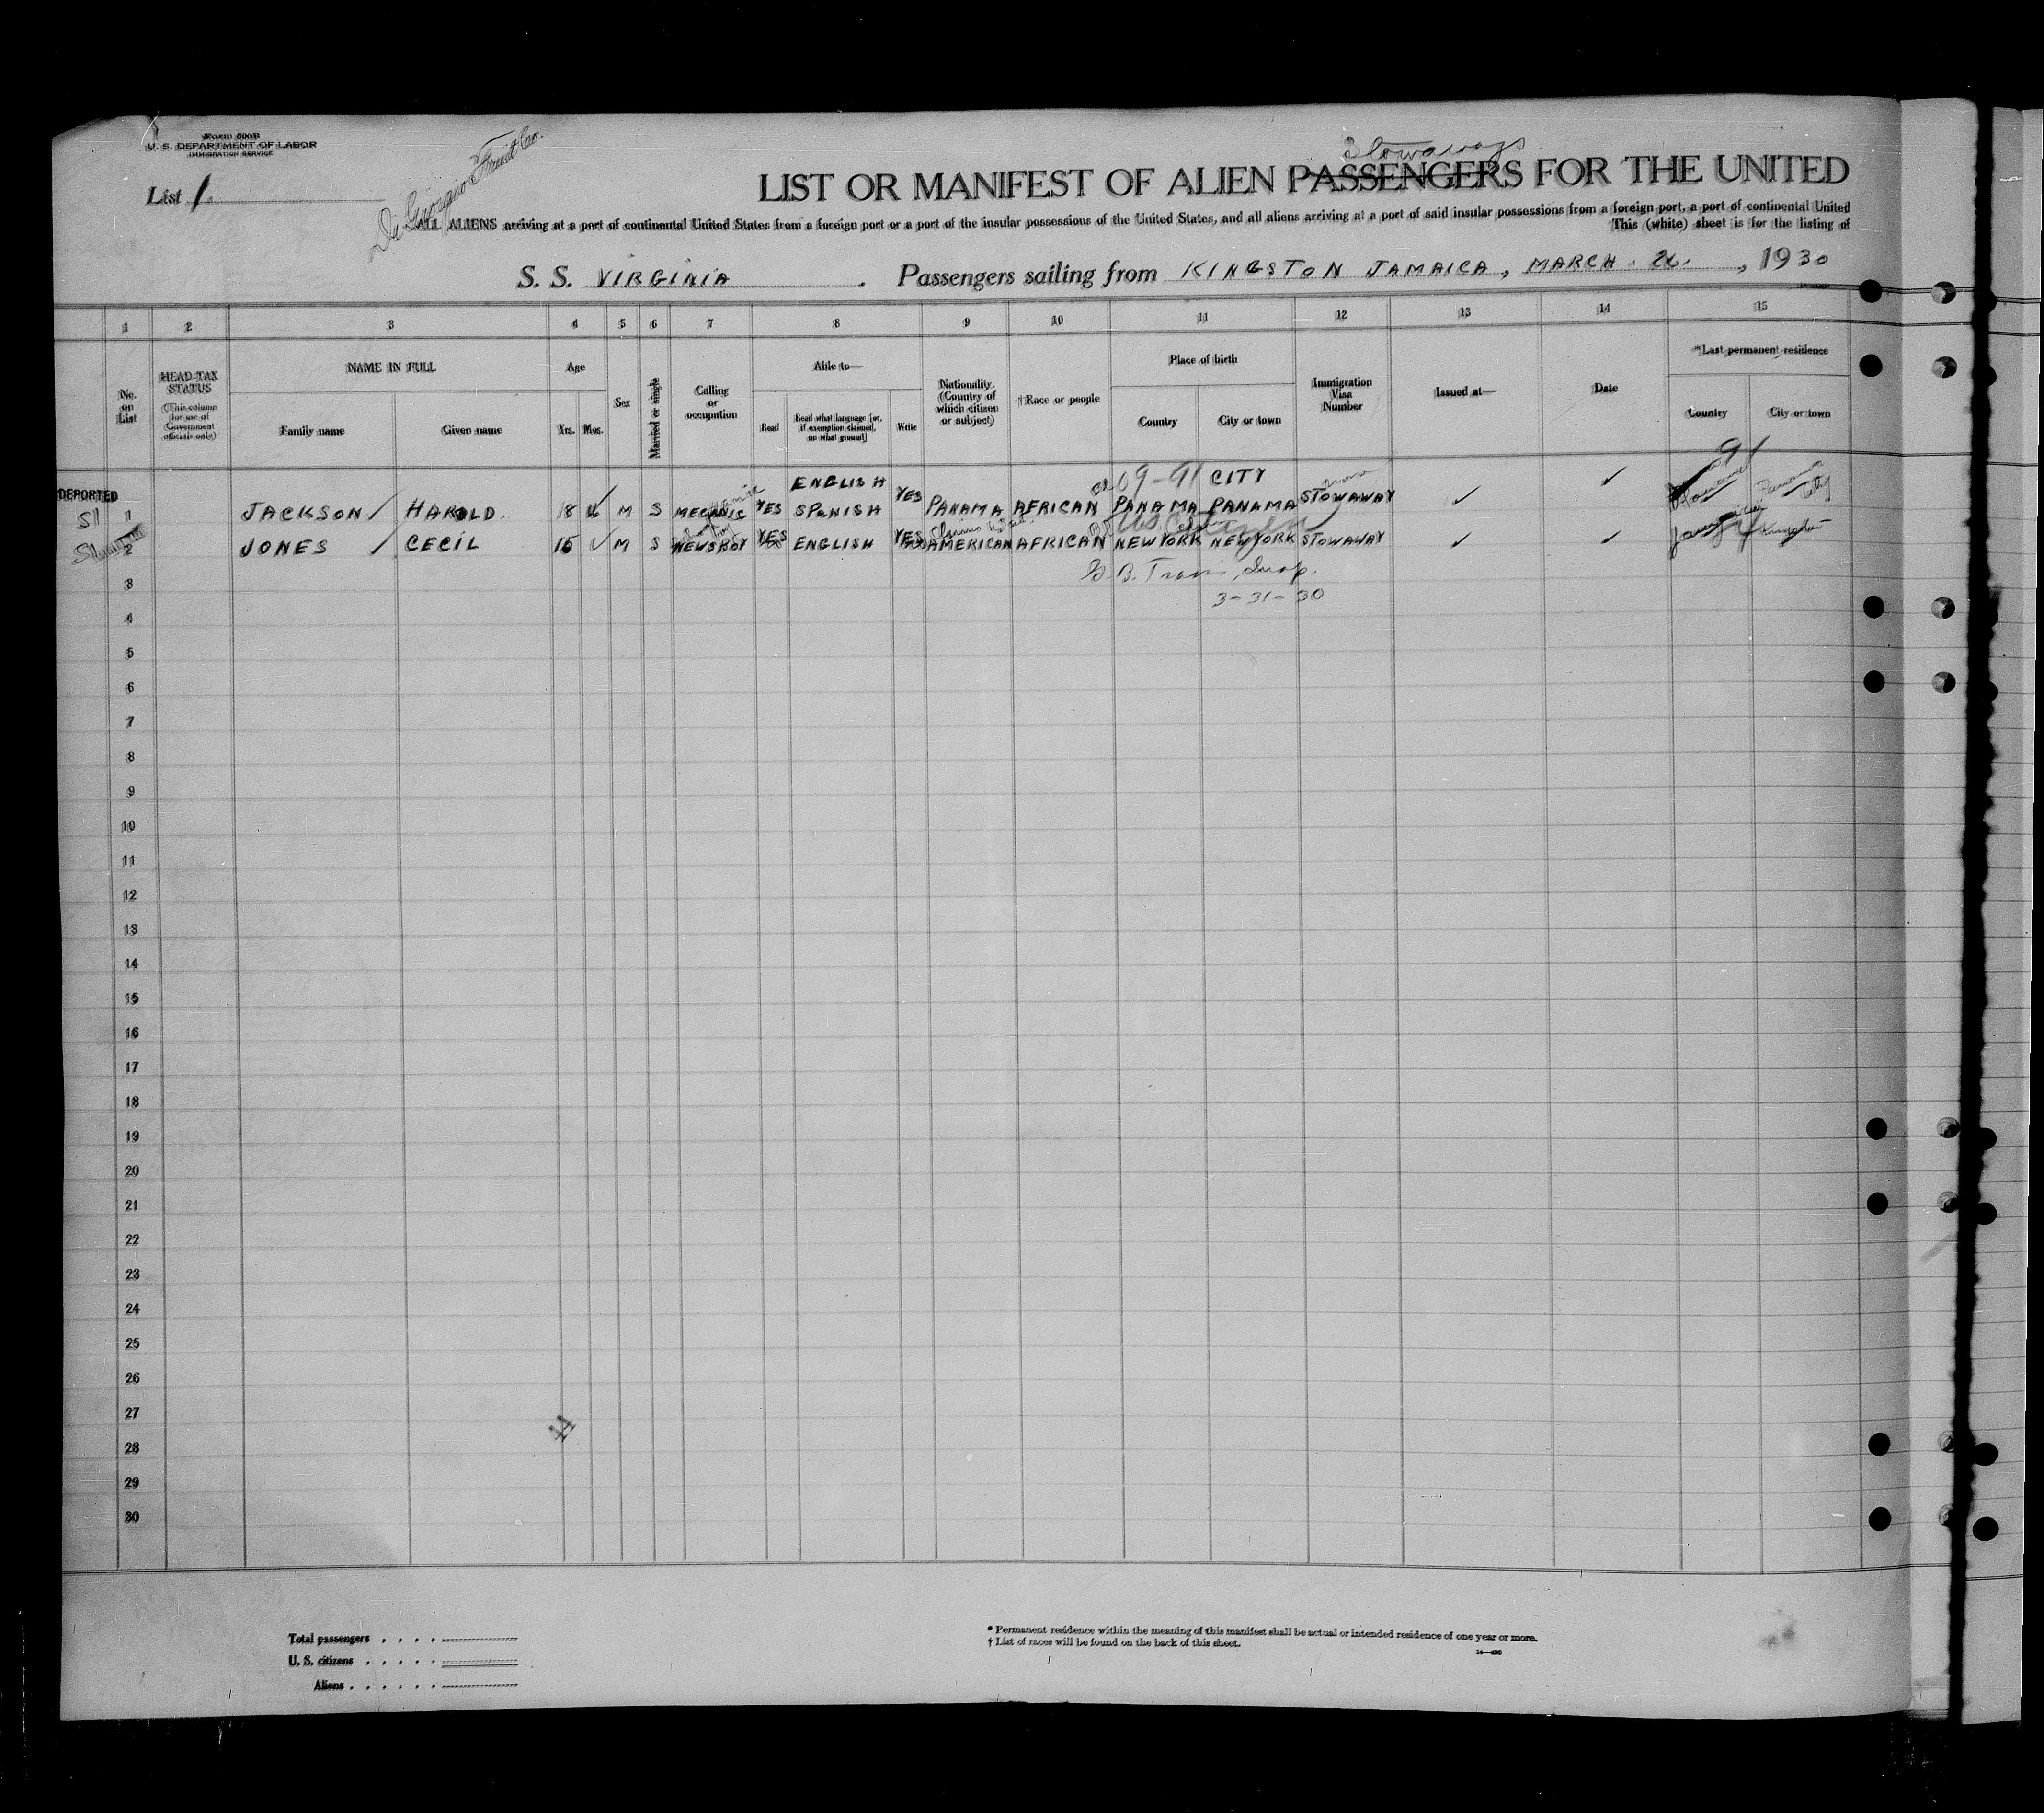 Form 500B
U. S. DEPARTMENT OF LABOR
IMMIGRATION SERVICE
List 1.
Di Giorgio Fruit Co.
Stowaways
LIST OR MANIFEST OF ALIEN PASSENGERS FOR THE UNITED
ALL ALIENS arriving at a port of continental United States from a foreign port or a port of the insular possessions of the United States, and all aliens arriving at a port of said insular possessions from a foreign port, a port of continental United
This (white) sheet is for the listing of
S. S. VIRGINIA . Passengers sailing from KINGSTON JAMAICA, MARCH. , 1930
1 2 3 4 5 6 7 8 9 10 11 12 13 14 15
No. on List
HEAD-TAX STATUS
(This column for use of Government officials only)
NAME IN FULL
Family name
Given name
Age
Yrs.
Mos.
Sex
Married or single
Calling or occupation
Able to—
Read
Read what language [or, if exemption claimed, on what ground]
Write
Nationality. (Country of which citizen or subject)
† Race or people
Place of birth
Country
City or town
Immigration Visa Number
Issued at—
Date
*Last permanent residence
Country
City or town
09-91 CITY
DEPORTED
ENGLISH
SI 1 JACKSON HAROLD. 18 M S MECANIC YES SPANISH YES PANAMA AFRICAN PANAMA PANAMA STOWAWAY Panama City
US Citizen
2 JONES CECIL 15 M S NEWSBOY YES ENGLISH YES AMERICAN AFRICAN NEW YORK NEW YORK STOWAWAY Jamaica Kingston
G. B. Travis, Insp.
3-31-30
3
4
5
6
7
8
9
10
11
12
13
14
15
16
17
18
19
20
21
22
23
24
25
26
27
28
29
30
Total passengers . . . .
U. S. citizens . . . . .
Aliens . . . . . .
* Permanent residence within the meaning of this manifest shall be actual or intended residence of one year or more.
† List of races will be found on the back of this sheet.